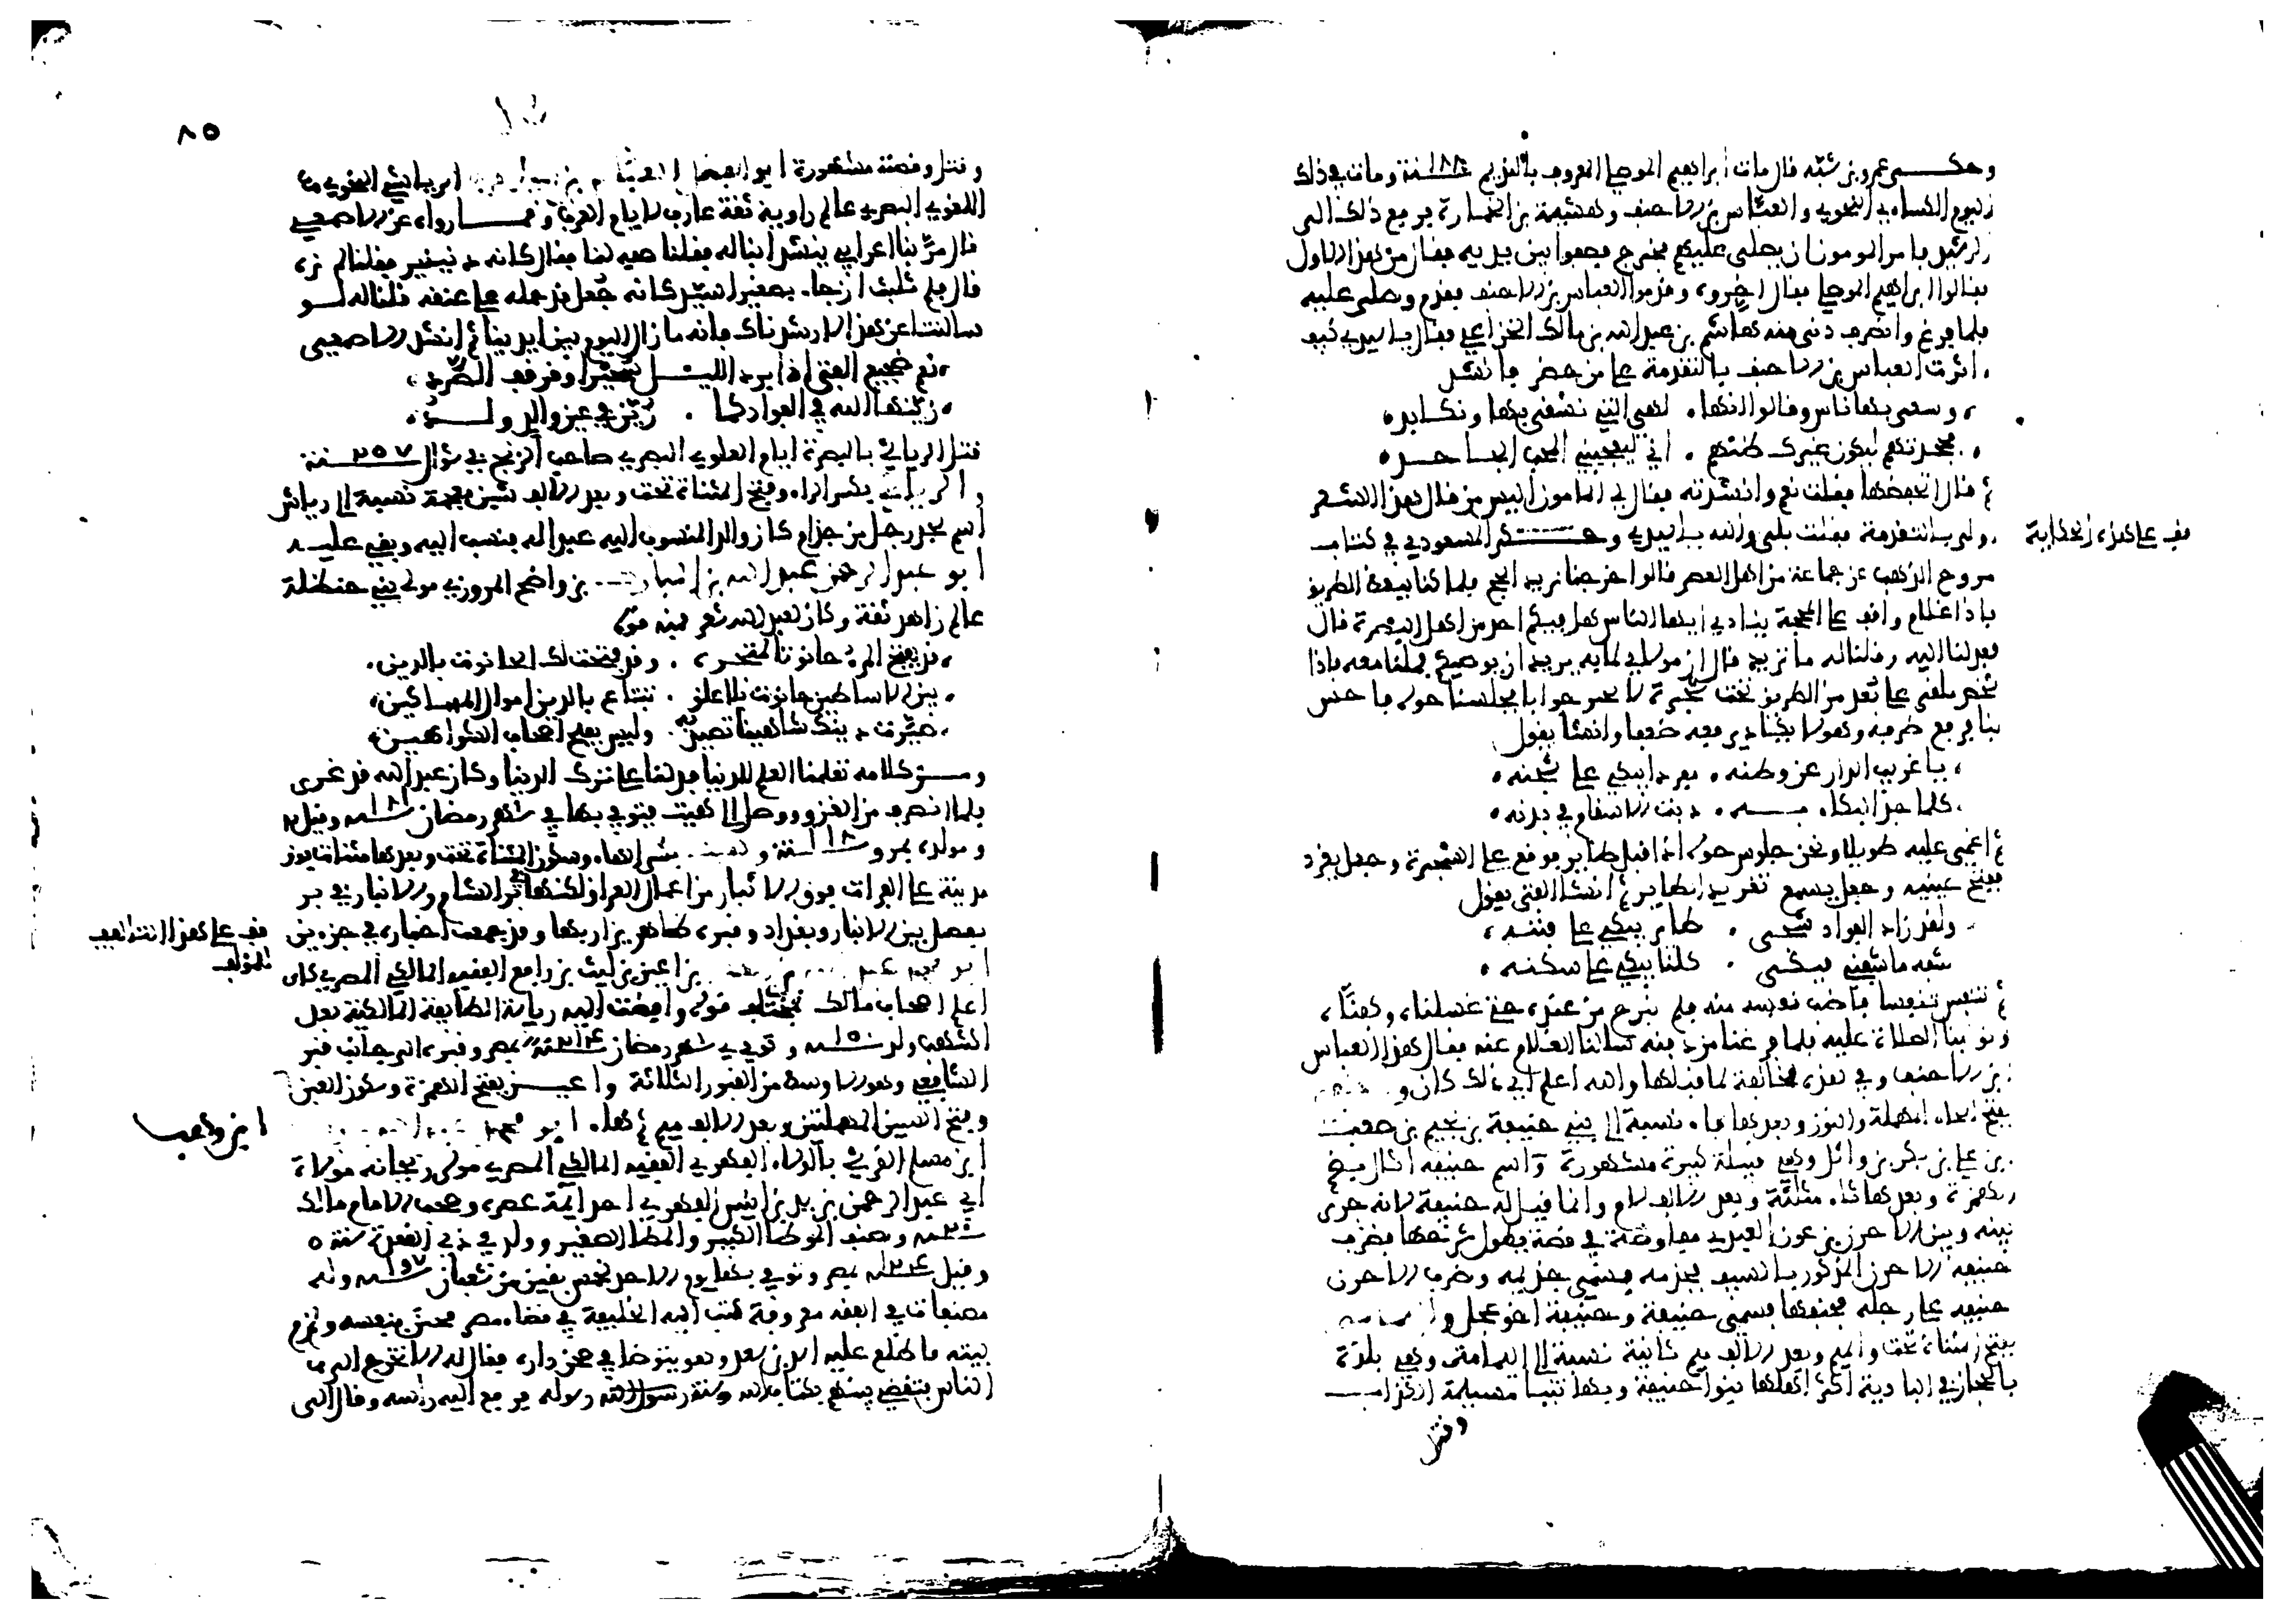 وحكى عمرو بن شبّه قال مات ابراهيم الموصلي المعروف بالنديم سنة ١٨٨ ومات في ذلك
اليوم الكساءي النحوي والعبّاس بن الاحنف وهشيمة بن الخمارة فرفع ذلك الى
الرشيد فامر المومون ان يصلى عليهم فخرج فصفوا بين يديه فقال من هذا الاول
فقالوا ابراهيم الموصلي فقال اخّروه وقدموا العباس بن الاحنف فقدم وصلى عليه
فلما فرغ وانصرف دنى منه هاشم بن عبد الله بن مالك الخزاعي فقال يا سيدي كيف
اثرت العباس بن الاحنف بالتقدمة على من حضر فانشد
وسعى بها ناس وقالوا انها لهي التي تشقى بها وتكابد
فجحدتهم ليكون غيرك ظنهم اني ليعجبني المحب الجاحد
ثم قال اتحفظها فقلت نعم وانشدته فقال لي المامون اليس من قال هذا الشعر
اولى بالتقدمة فقلت بلى والله يا سيدي وحكى المسعودي في كتاب
قف على هذه الحكاية
مروج الذهب عن جماعة من اهل العصر قالوا خرجنا نريد الحج فلما كنا ببعض الطريق
فاذا غلام واقف على المحجة ينادي ايها الناس هل فيكم احد من اهل البصرة قال
فعدلنا اليه وقلنا له ما تريد قال ان مولاي لما به يريد ان يوصيكم فملنا معه فاذا
شخص ملقى على بعد من الطريق تحت شجرة لا يحير جوابا فجلسنا حوله فاحس
بنا فرفع طرفه وهو لا يكاد يرفعه ضعفا وانشا يقول
يا غريب الدار عن وطنه مفردا يبكي على شجنه
كلما جد البكاء به دبت الاسقام في بدنه
ثم اغمي عليه طويلا ونحن جلوس حوله اذ اقبل طاير فوقع على الشجرة وجعل يغرد
ففتح عينيه وجعل يسمع تغريد الطاير ثم انشا الفتى يقول
ولقد زاد الفواد شجى طاير يبكي على فننه
شفه ما شفني فبكى كلنا يبكي على سكنه
ثم تنفس تنفيسا فاضت نفسه منه فلم نبرح من عنده حتى غسلناه وكفنّاه
وتولينا الصلاة عليه فلما فرغنا من دفنه سالنا الغلام عنه فقال هذا العباس
بن الاحنف وفي هذه مخالفة لما قبلها والله اعلم اي ذلك كان
بفتح الحاء المهملة والنون وبعدها فاء نسبة الى بني حنيفة بن لجيم بن صعب
بن علي بن بكر بن وائل وهي قبيلة كبيرة مشهورة واسم حنيفة اثال بضم
الهمزة وبعدها ثاء مثلثة وبعد الالف لام وانما قيل له حنيفة لانه جرى
بينه وبين الاحزن بن عون العبدي مفاوضة في قصة يطول شرحها فضرب
حنيفة الاحزن المذكور بالسيف فجذمه فسمي جذيمه وضرب الاحزن
حنيفة على رجله فحنفها فسمي حنيفة وحنيفة اخو عجل
بفتح المثناة تحت والميم وبعد الالف ميم ثانية نسبة الى اليمامة وهي بلدة
بالحجاز في البادية اكثر اهلها بنوا حنيفة وبها تنبا مسيلمة الكذاب
وقتل
٨٥
وقتل وقصته مشهورة ابو الفضل العبّاس بن الفرج الرياشي النحوي
اللغوي البصري عالم راوية ثقة عارف بايام العرب ومما رواه عن الاصمعي
قال مرّ بنا اعرابي ينشد ابنا له فقلنا صفه لنا فقال كانه دنينير فقلنا لم نره
قال فلم نلبث ان جاء بصغير اسيّد كانه جُعل قد حمله على عنقه فقلنا له لو
سالتنا عن هذا لارشدناك فانه مازال اليوم بين ايدينا ثم انشد الاصمعي
نعم ضجيع الفتى اذا برد الليل سحيرا وقرقف الصرد
زيّنها الله في الفواد كما زيّن في عين والد ولد
قتل الرياشي بالبصرة ايام العلوي البصري صاحب الزنج في شوال سنة ٢٥٧
والرياشي بكسر الراء وفتح المثناة تحت وبعد الالف شين معجمة نسبة الى رياش
اسم لجد رجل من جذام كان والد المنسوب اليه عبدا له فنسب اليه وبقي عليه
ابو عبد الرحمن عبد الله بن المبارك بن واضح المروزي مولى بني حنظلة
عالم زاهد ثقة وكان لعبد الله شعر فمنه قوله
قد يفتح المرء حانوتا لمتجره وقد فتحت لك الحانوت بالدين
بين الاساطين حانوت بلا غلق تبتاع بالدين اموال المساكين
صيّرت دينك شاهينا تصيد به وليس يفلح اصحاب الشواهين
ومن كلامه تعلمنا العلم للدنيا فدلنا على ترك الدنيا وكان عبد الله قد غزى
فلما انصرف من الغزو ووصل الى هيت فتوفي بها في شهر رمضان سنة ١٨١ وقيل ٢
ومولده بمرو سنة ١١٨ وهيت بكسر الهاء وسكون المثناة تحت وبعدها مثناة فوق
مدينة على الفرات فوق الانبار من اعمال العراق لكنها في بر الشام والانبار في بر
يفصل بين الانبار وبغداد وقبره ظاهر يزار بها وقد جمعت اخباره في جزءين
قف على هذا انتهى
المؤلف
ابو محمد عبد الله بن عبد الحكم بن اعين بن ليث بن رافع الفقيه المالكي المصري كان
اعلم اصحاب مالك بمختلف قوله وافضت اليه رياسة الطايفة المالكية بعد
اشهب ولد سنة ١٥٠ وتوفي في شهر رمضان سنة ٢١٤ بمصر وقبره الى جانب قبر
الشافعي وهو الاوسط من القبور الثلاثة واعين بفتح الهمزة وسكون العين
وفتح السين المهملتين وبعد الالف ميم ثم هاء ابو محمد عبد الله
ابن وهب
ابن مسلم القرشي بالولاء الفهري الفقيه المالكي المصري مولى ريحانة مولاة
ابي عبد الرحمن يزيد بن انيس الفهري احد ايمة عصره وصحب الامام مالك
سنة ٢٠ وصنف الموطا الكبير والموطا الصغير وولد في ذي القعدة سنة ٥
وقيل سنة ١٢٤ بمصر وتوفي بها يوم الاحد لخمس بقين من شعبان سنة ١٩٧ وله
مصنفات في الفقه معروفة كتب اليه الخليفة في قضاء مصر فجنن نفسه ولزم
بيته فاطلع عليه اسد بن سعد وهو يتوضا في صحن داره فقال له الا تخرج الى
الناس تقضي بينهم بكتاب الله وسنة رسوله فرفع اليه راسه وقال الى